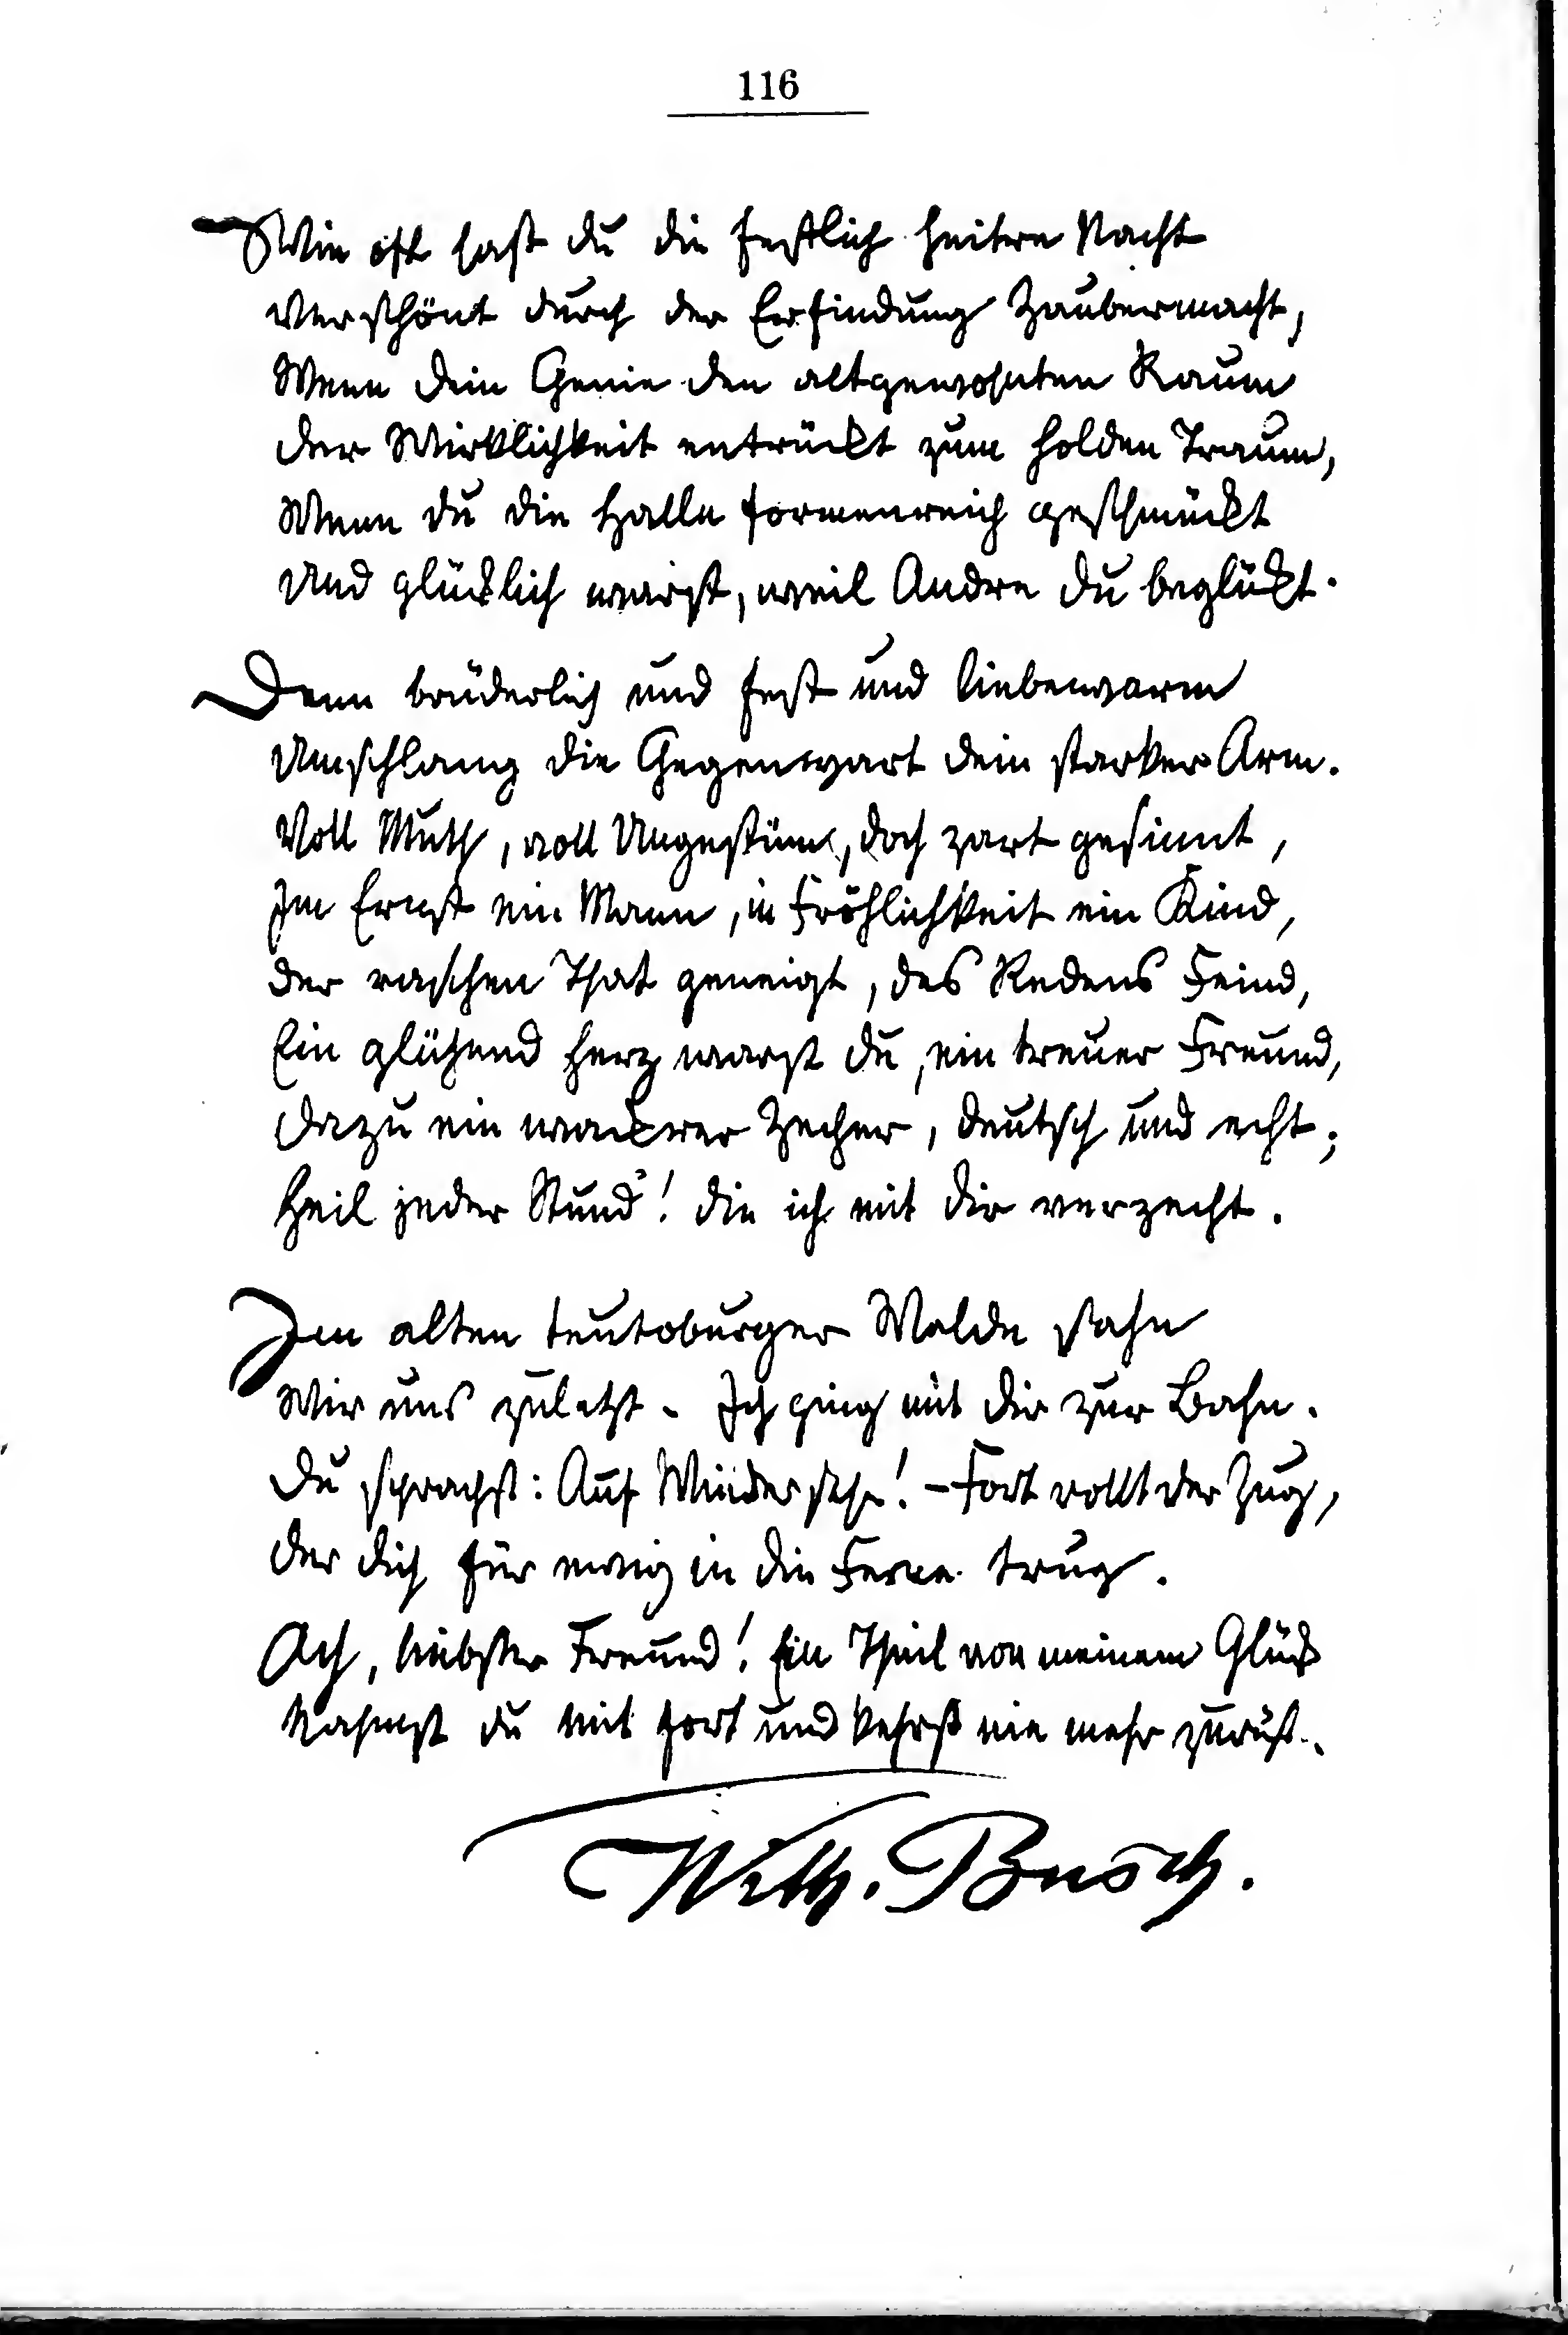 116
Wie oft hast du die festlich heitre Nacht
Verschönt durch der Erfindung Zaubermacht,
Wenn dein Genie den altgewohnten Raum
Der Wirklichkeit entrückt zum holden Traum,
Wenn du die Halle formenreich geschmückt
Und glücklich warst, weil Andre du beglückt.
Denn brüderlich und fest und liebewarm
Umschlang die Gegenwart dein starker Arm.
Voll Muth, voll Ungestüm, doch zart gesinnt,
Im Ernst ein Mann, in Fröhlichkeit ein Kind,
Der raschen That geneigt, des Redens Feind,
Ein glühend Herz warst du, ein treuer Freund,
Dazu ein wackrer Zecher, deutsch und echt;
Heil jeder Stund'! die ich mit dir verzecht.
Im alten teutoburger Walde sahn
Wir uns zuletzt. Ich ging mit dir zur Bahn.
Du sprachst: Auf Wiedersehn! – Fort rollt der Zug,
Der dich für ewig in die Ferne trug.
Ach, liebster Freund! Ein Theil von meinem Glück
Nahmst du mit fort und kehrst nie mehr zurück.
Wilh. Busch.